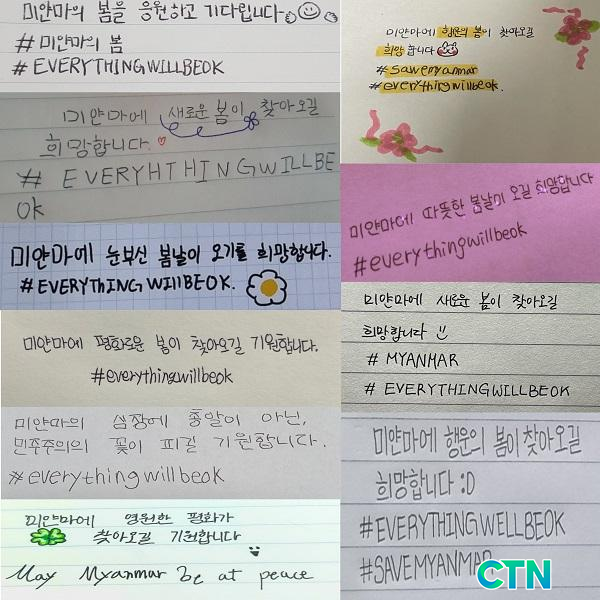 미얀마의 봄을 응원하고 기다립니다
#미얀마의 봄
# EVERYTHINGWILLBEOK
미얀마에 새로운 봄이 찾아오길
희망합니다.
# EVERYHTHINGWILLBE
Ok
미얀마에 눈부신 봄날이 오기를 희망합니다.
#EVERYThINGWIllBEOK.
미얀마에 평화로운 봄이 찾아오길 기원합니다.
#everythingwillbeok
미얀마의 심장에 총알이 아닌,
민주주의의 꽃이 피길 기원합니다.
#everythingwillbeok
미얀마에 영원한 평화가
찾아오길 기원합니다
May Myanmar be at peace
미얀마에 행운의 봄이 찾아오길
희망합니다
#savemyanmar
#everythingwillbeok.
미얀마에 따뜻한 봄날이 오길 희망합니다
#everythingwillbeok
미얀마에 새로운 봄이 찾아오길
희망합니다 :)
# MYANMAR
# EVERYTHINGWILLBEOK
미얀마에 행운의 봄이 찾아오길
희망합니다 :D
#EVERYTHINGWELLBEOK
#SAVEMYANMAR
CTN